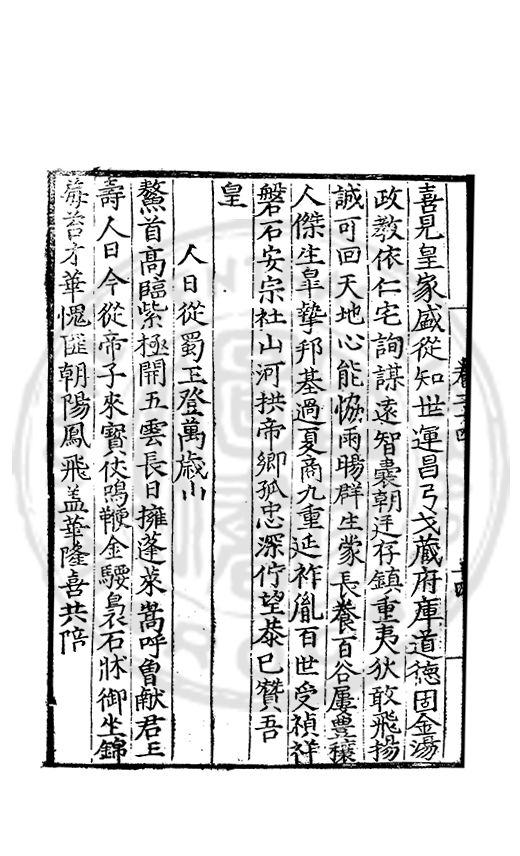 喜見皇家盛從知世運昌弓戈藏府庫道德固金湯
政教依仁宅詢謀遠智囊朝廷存鎮重夷狄敢飛揚
誠可回天地心能恊雨暘群生蒙長養百谷屢豊穰
人傑生臯摯邦基過夏商九重延祚胤百世受禎祥
磐石安宗社山河拱帝鄉孤忠深佇望恭已贊吾
皇
人日從蜀王登萬歲山
鰲首高臨紫極開五雲長日擁蓬萊嵩呼曾献君王
壽人日今從帝子來寶仗鳴鞭金騕褭石牀御坐錦
莓苔才華愧匪朝陽鳳飛盖華隆喜共陪